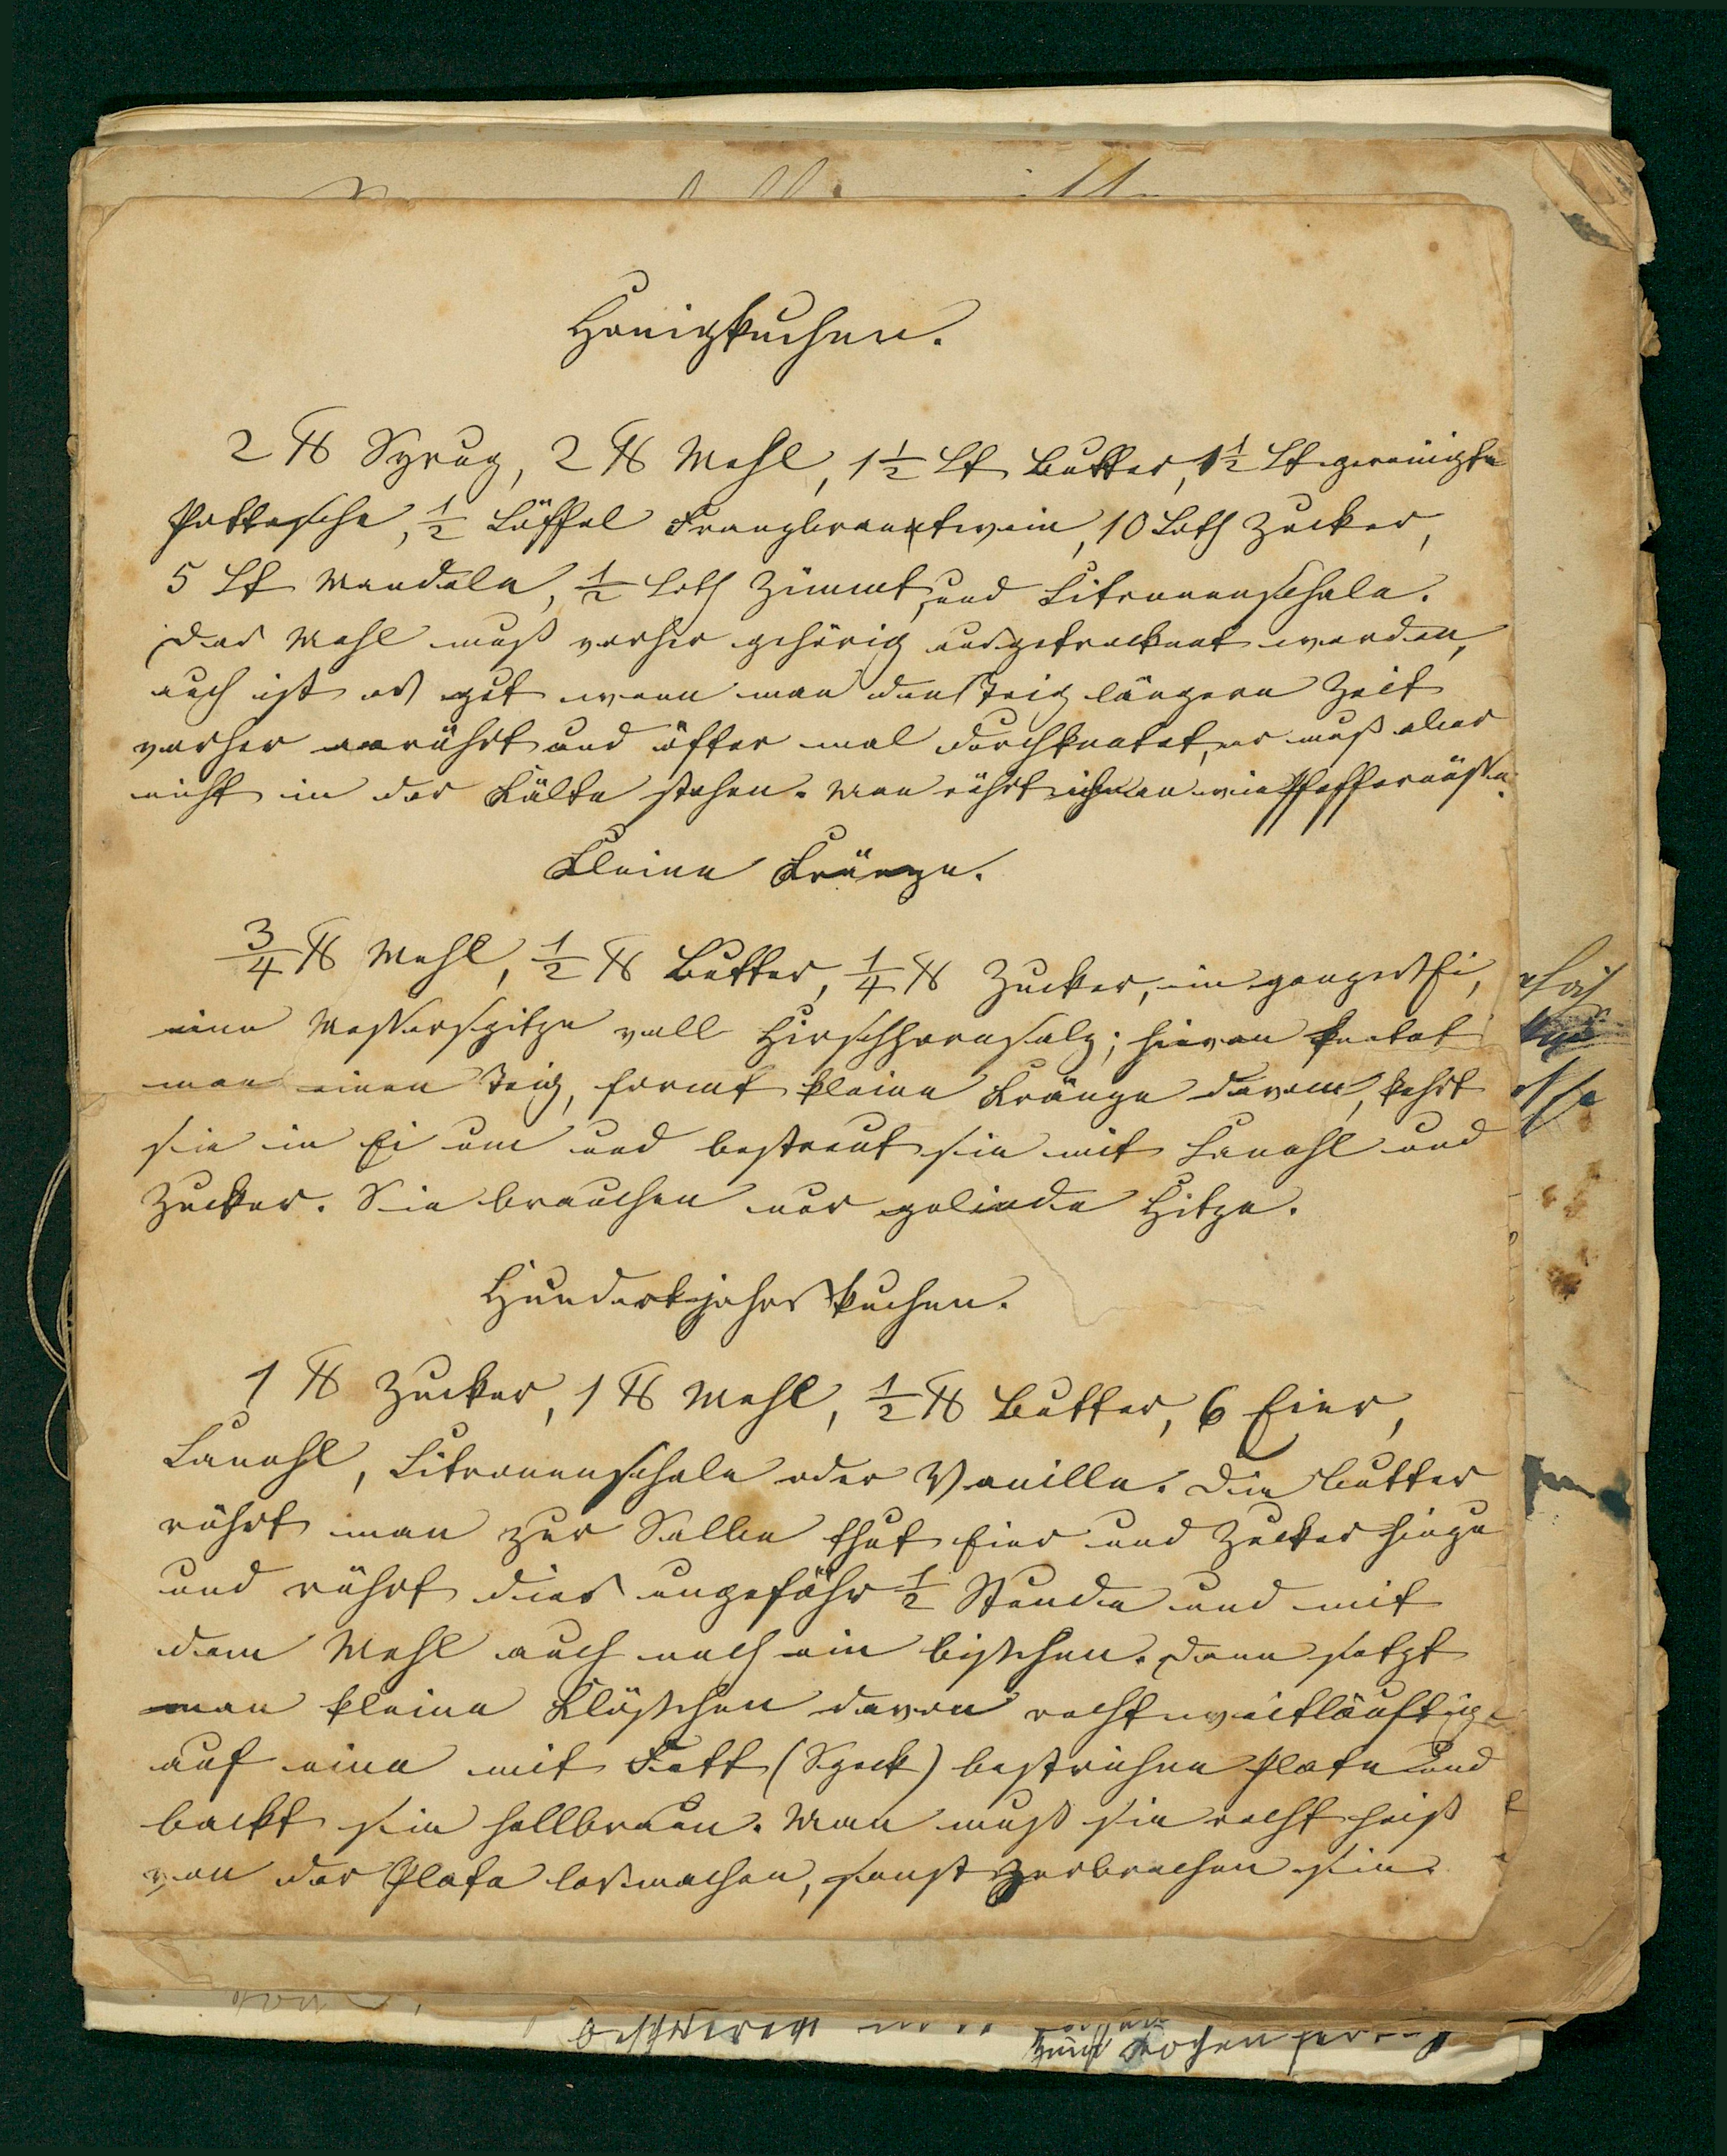 Honigkuchen.
2 ℔ Syrup, 2 ℔ Mehl, 1 1/2 Lt Butter, 1 1/2 Lt gereinigte
Pottasche, 1/2 Löffel Franzbranntwein, 10 Loth Zucker,
5 Lt Mandeln, 1/2 Loth Zimmt, und Citronenschale.
Das Mehl muß vorher gehörig ausgetrocknet werden,
auch ist es gut wenn man den Teig längere Zeit
vorher anrührt und öfter mal durchknetet, er muß aber
nicht in der Kälte stehen. Man rührt ihn an wie Pfeffernüsse.
Kleine Kränze.
3/4 ℔ Mehl, 1/2 ℔ Butter, 1/4 ℔ Zucker, ein ganzes Ei,
eine Messerspitze voll Hirschhornsalz; hievon knetet
man einen Teig, formt kleine Kränze davon, kehrt
sie in Ei um und bestreut sie mit Canehl und
Zucker. Sie brauchen nur gelinde Hitze.
Hundertjahrskuchen.
1 ℔ Zucker, 1 ℔ Mehl, 1/2 ℔ Butter, 6 Eier,
Canehl, Citronenschale oder Vanille. Die Butter
rührt man zur Salbe thut Eier und Zucker hinzu
und rührt dies ungefähr 1/2 Stunde und mit
dem Mehl auch noch ein bißchen. Dann setzt
man kleine Klößchen davon recht weitläuftig
auf eine mit Fett (Speck) bestrichene Plate und
backt sie hellbraun. Man muß sie recht heiß
von der Plate losmachen, sonst zerbrechen sie.
zum Kochen